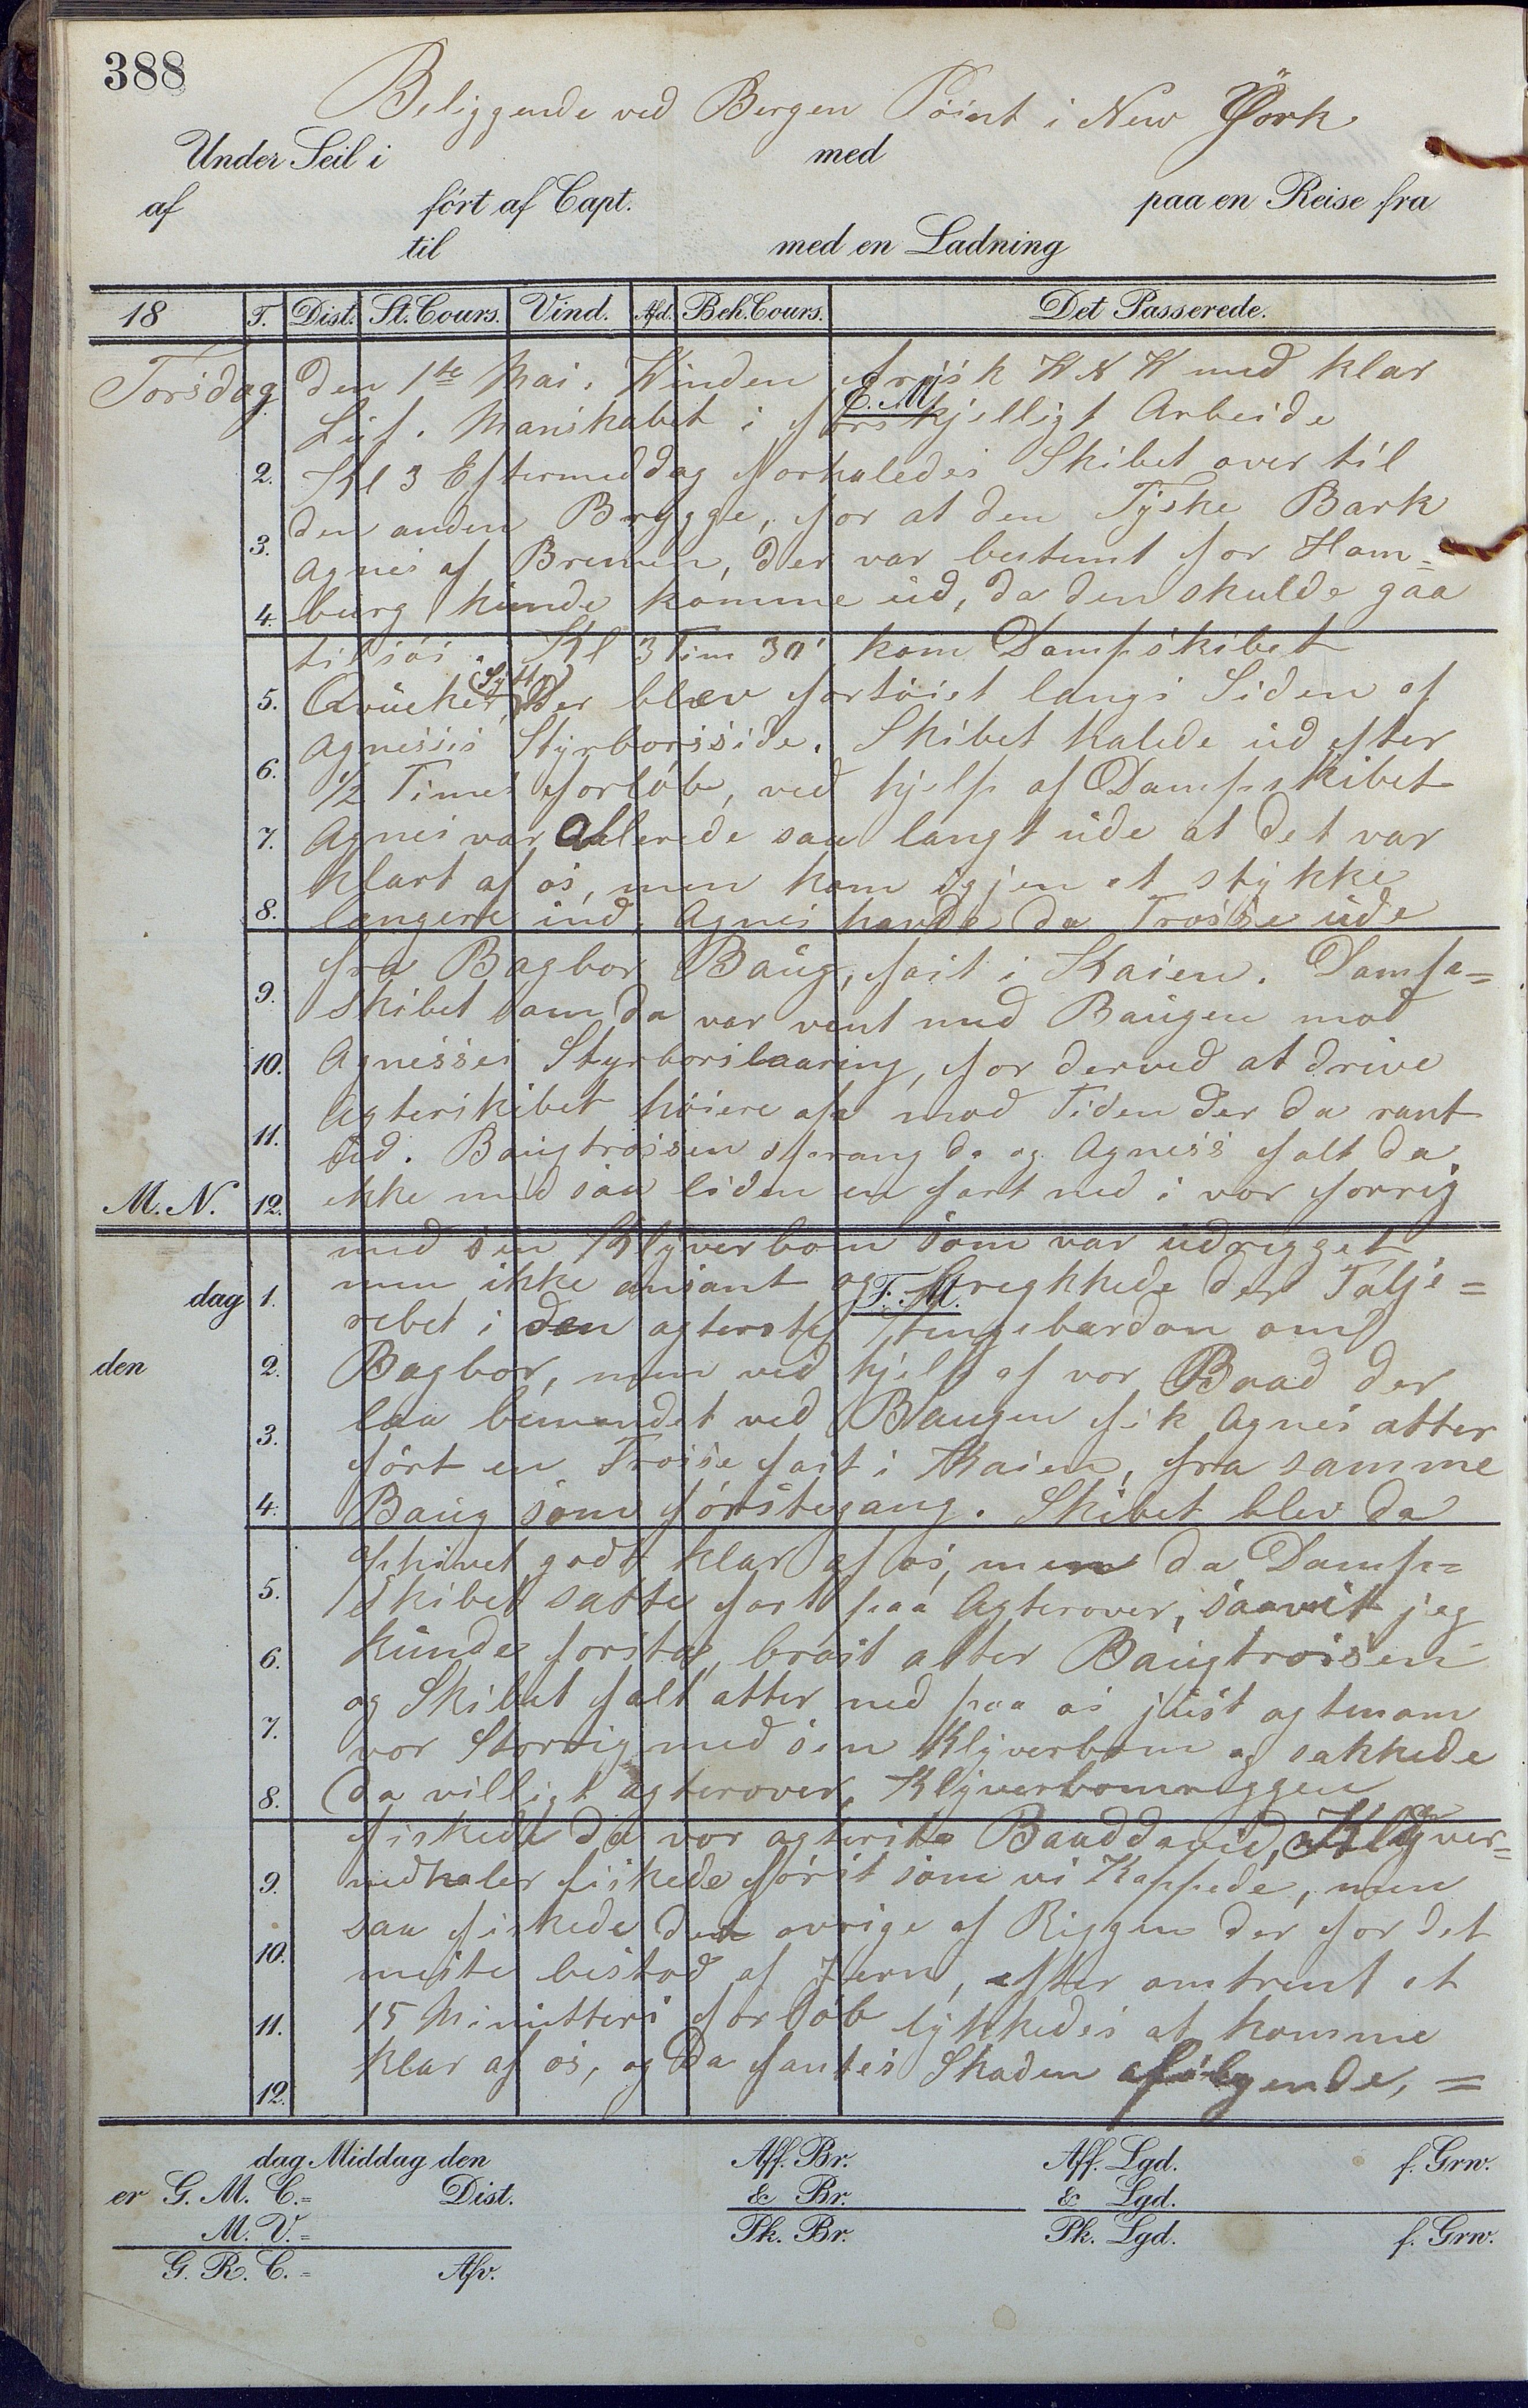 388
Beliggende ved Bergen Point i New York
Under Seil i med
af ført af Capt. paa en Reise fra
til med en Ladning
18 T. Dist. St. Cours. Vind. Afd. Beh. Cours. Det Passerede.
Torsdag den 1ste Mai. Winden frisk W N W med klar
E. M.
Luf. Manskabet i forskjelligt Arbeide
2. Kl 3 Eftermeddag forhaledes Skibet over til
3. den anden Brygge, for at den Tyske Bark
Agnes af Bremen, der var bestemt for Ham=
4. burg kunde komme ud, da den skulde gaa
tilsøs. Kl 3 Tim 30' kom Dampskibet
5. der blev fortøiet langs Siden af
Agnesses Styrborsside. Skibet halede ud efter
6. 1/2 Times forløb, ved hjelp af Dampskibet
7. Agnes var allerede saa langt ude at det var
klart af os, men kom igjen et stykke
8. længere ind. Agnes havde da Trosse ude
fra Bagbor Baug, fast i Kaien. Damp=
9. skibet som da var vent med Baugen mod
10. Agnesses Styrborslaaring, for derved at drive
Agterskibet høiere op mod Tiden der da rant
11. ud. Baugtrossen sprang da og Agness falt da
M. N. 12. ikke med saa liden en fart ned i vor forrig
med sin Klyverbom som var udrigget
dag 1. men ikke ansant og brækkede der Talje=
F. M.
rebet i den agterste Stengebardon om
den 2. Bagbor, men ved hjelp af vor Baad der
3. laa bemandet ved Baugen fik Agnes atter
ført en Trosse fast i Kaien, fra samme
4. Baug som førstegang. Skibet blev da
ophivet godt klar af os, men da Damp=
5. skibet satte fart paa Agterover, saavit jeg
6. kunde forstaa, brast atter Baugtrossen
og Skibet falt atter ned paa os just agtenom
7. vor Storrig med sin Klyverbom og sakkede
8. da villigt agterover, Klyverbomriggen
fiskede da vor agterste Baaddavid, Klyver=
9. nedhaler fiskede først som vi kappede, men
saa fiskede det øvrige af Riggen der for det
10. meste bestod af Jern, efter omtrent et
11. 15 Minutters forløb lykkedes at komme
klar af os, og da fantes Skaden afølgende, =
12.
dag Middag den Aff. Br. Aff. Lgd. f. Grw.
er G. M. C.= Dist. & Br. & Lgd.
M. V.= Pk. Br. Pk. Lgd. f. Grw.
G. R. C.= Afv.